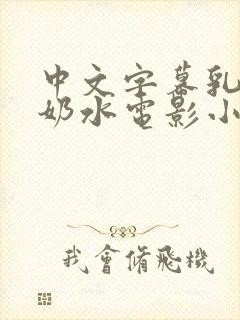 中文字幕乳
奶水电影小
我會脩飛機